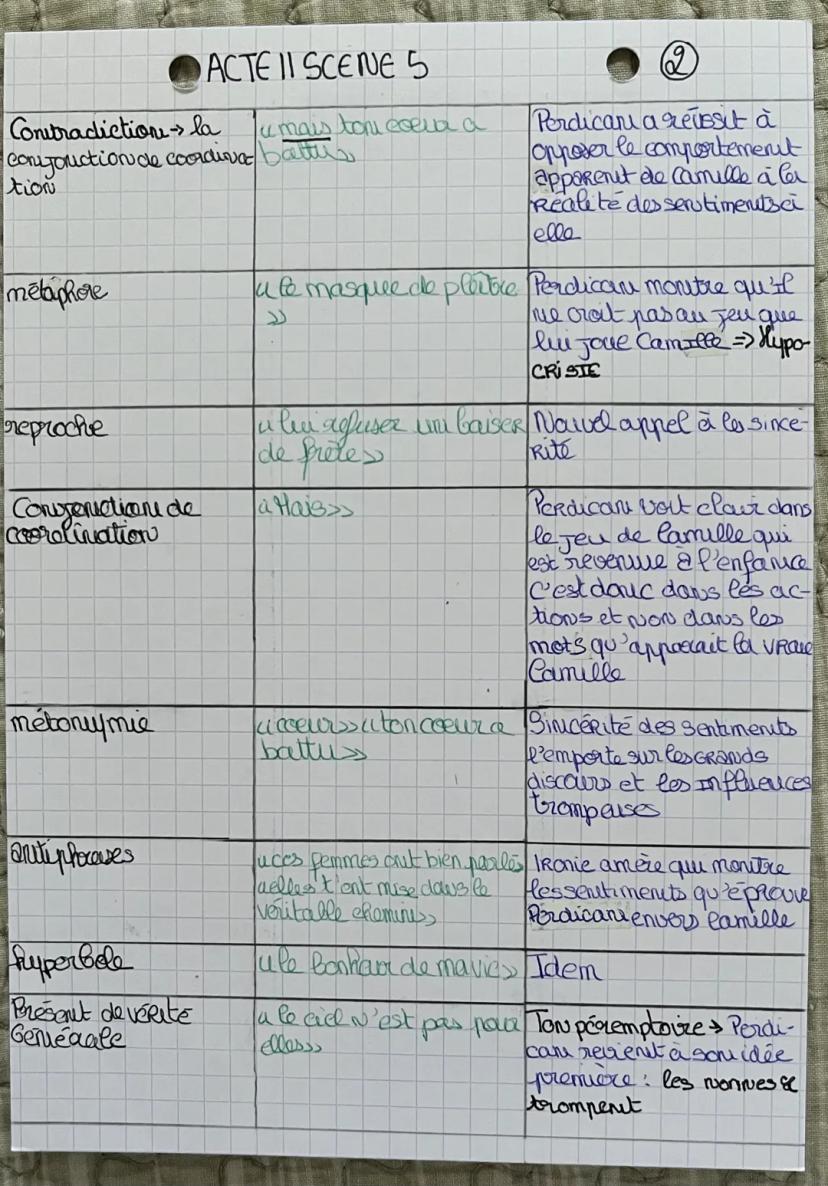 ACTE II SCENE 5
2
Contradiction → la
conjonction de coordina
tion
« mais ton coeur a
battu »
Perdican a réussit à
opposer le comportement
apparent de Camille à la
Réalité des sentiments ci
elle
métaphore
« le masque de plâtre
»
Perdican montre qu'il
ne croit pas au jeu que
lui joue Camille => Hypo-
CRISIE
reproche
« lui refuser un baiser
de frère »
Nouvel appel à la since-
Rité
Conjonction de
coordination
« Mais »
Perdican voit clair dans
le jeu de Camille qui
est revenue à l'enfance
C'est donc dans les ac-
tions et non dans les
mots qu'apparait la vraie
Camille
métonymie
« coeur » « ton coeur a
battu »
Sincérité des sentiments
l'emporte sur les GRANDS
discours et les influences
trompeuses
antiphrases
« ces femmes ont bien parlés
elles t'ont mise dans le
véritable chemin »
IRonie amère qui montre
les sentiments qu'éprouve
Perdican envers Camille
hyperbole
« le bonheur de ma vie »
Idem
Présent de vérité
Générale
« le ciel n'est pas pour
elles »
Ton péremptoire → Perdi-
can revient à son idée
première : les nonnes se
trompent